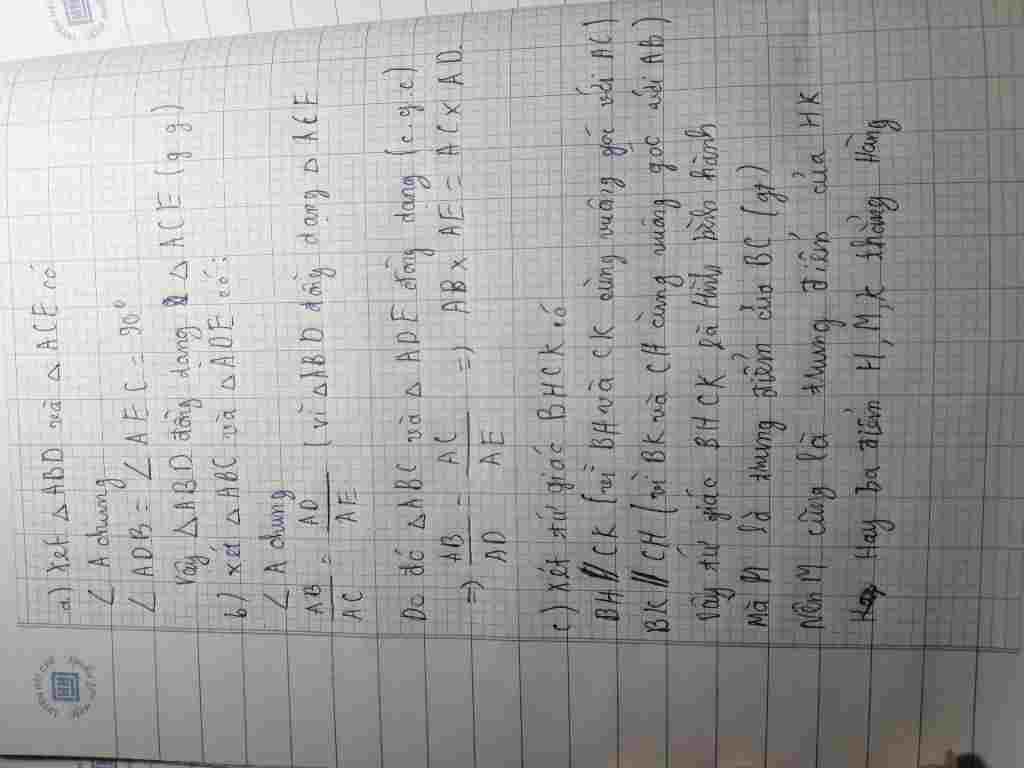 a) Xét △ ABD và △ ACE có
∠ A chung
∠ ADB = ∠ AEC = 90°
Vậy △ ABD đồng dạng △ ACE (g g)
b) Xét △ ABC và △ ADE có:
∠ A chung
AB/AC = AD/AE (vì △ ABD đồng dạng △ ACE
Do đó △ ABC và △ ADE đồng dạng (c. g. c)
=> AB/AD = AC/AE => AB x AE = AC x AD.
c) Xét tứ giác BHCK có
BH // CK (vì BH và CK cùng vuông góc với AC)
BK // CH (vì BK và CH cùng vuông góc với AB)
Vậy tứ giác BHCK là hình bình hành
Mà M là trung điểm của BC (gt)
Nên M cũng là trung điểm của HK
Hay ba điểm H, M, K thẳng hàng